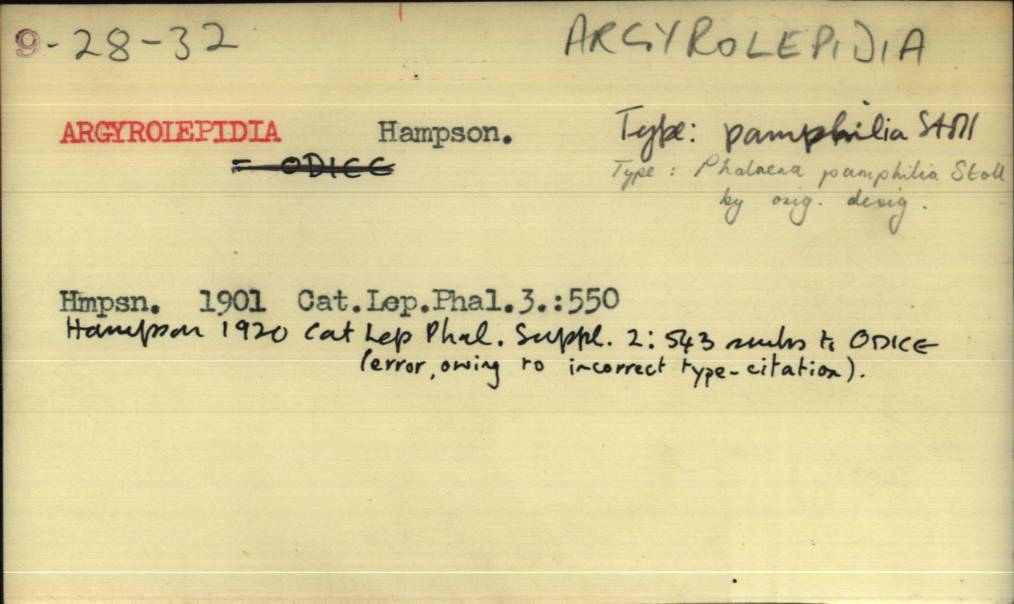 9-28-32 ARGYROLEPIDIA
ARGYROIEPIDIA Hampson. Type: pamphilia Stoll
= ODICE Type: Phalaena pamphilia Stoll
by orig. desig.
Hmpsn. 1901 Cat.Lep.Phal.3.:550
Hampson 1920 Cat Lep Phal. Suppl. 2: 543 sinks to ODICE
(error, owing to incorrect type-citation).